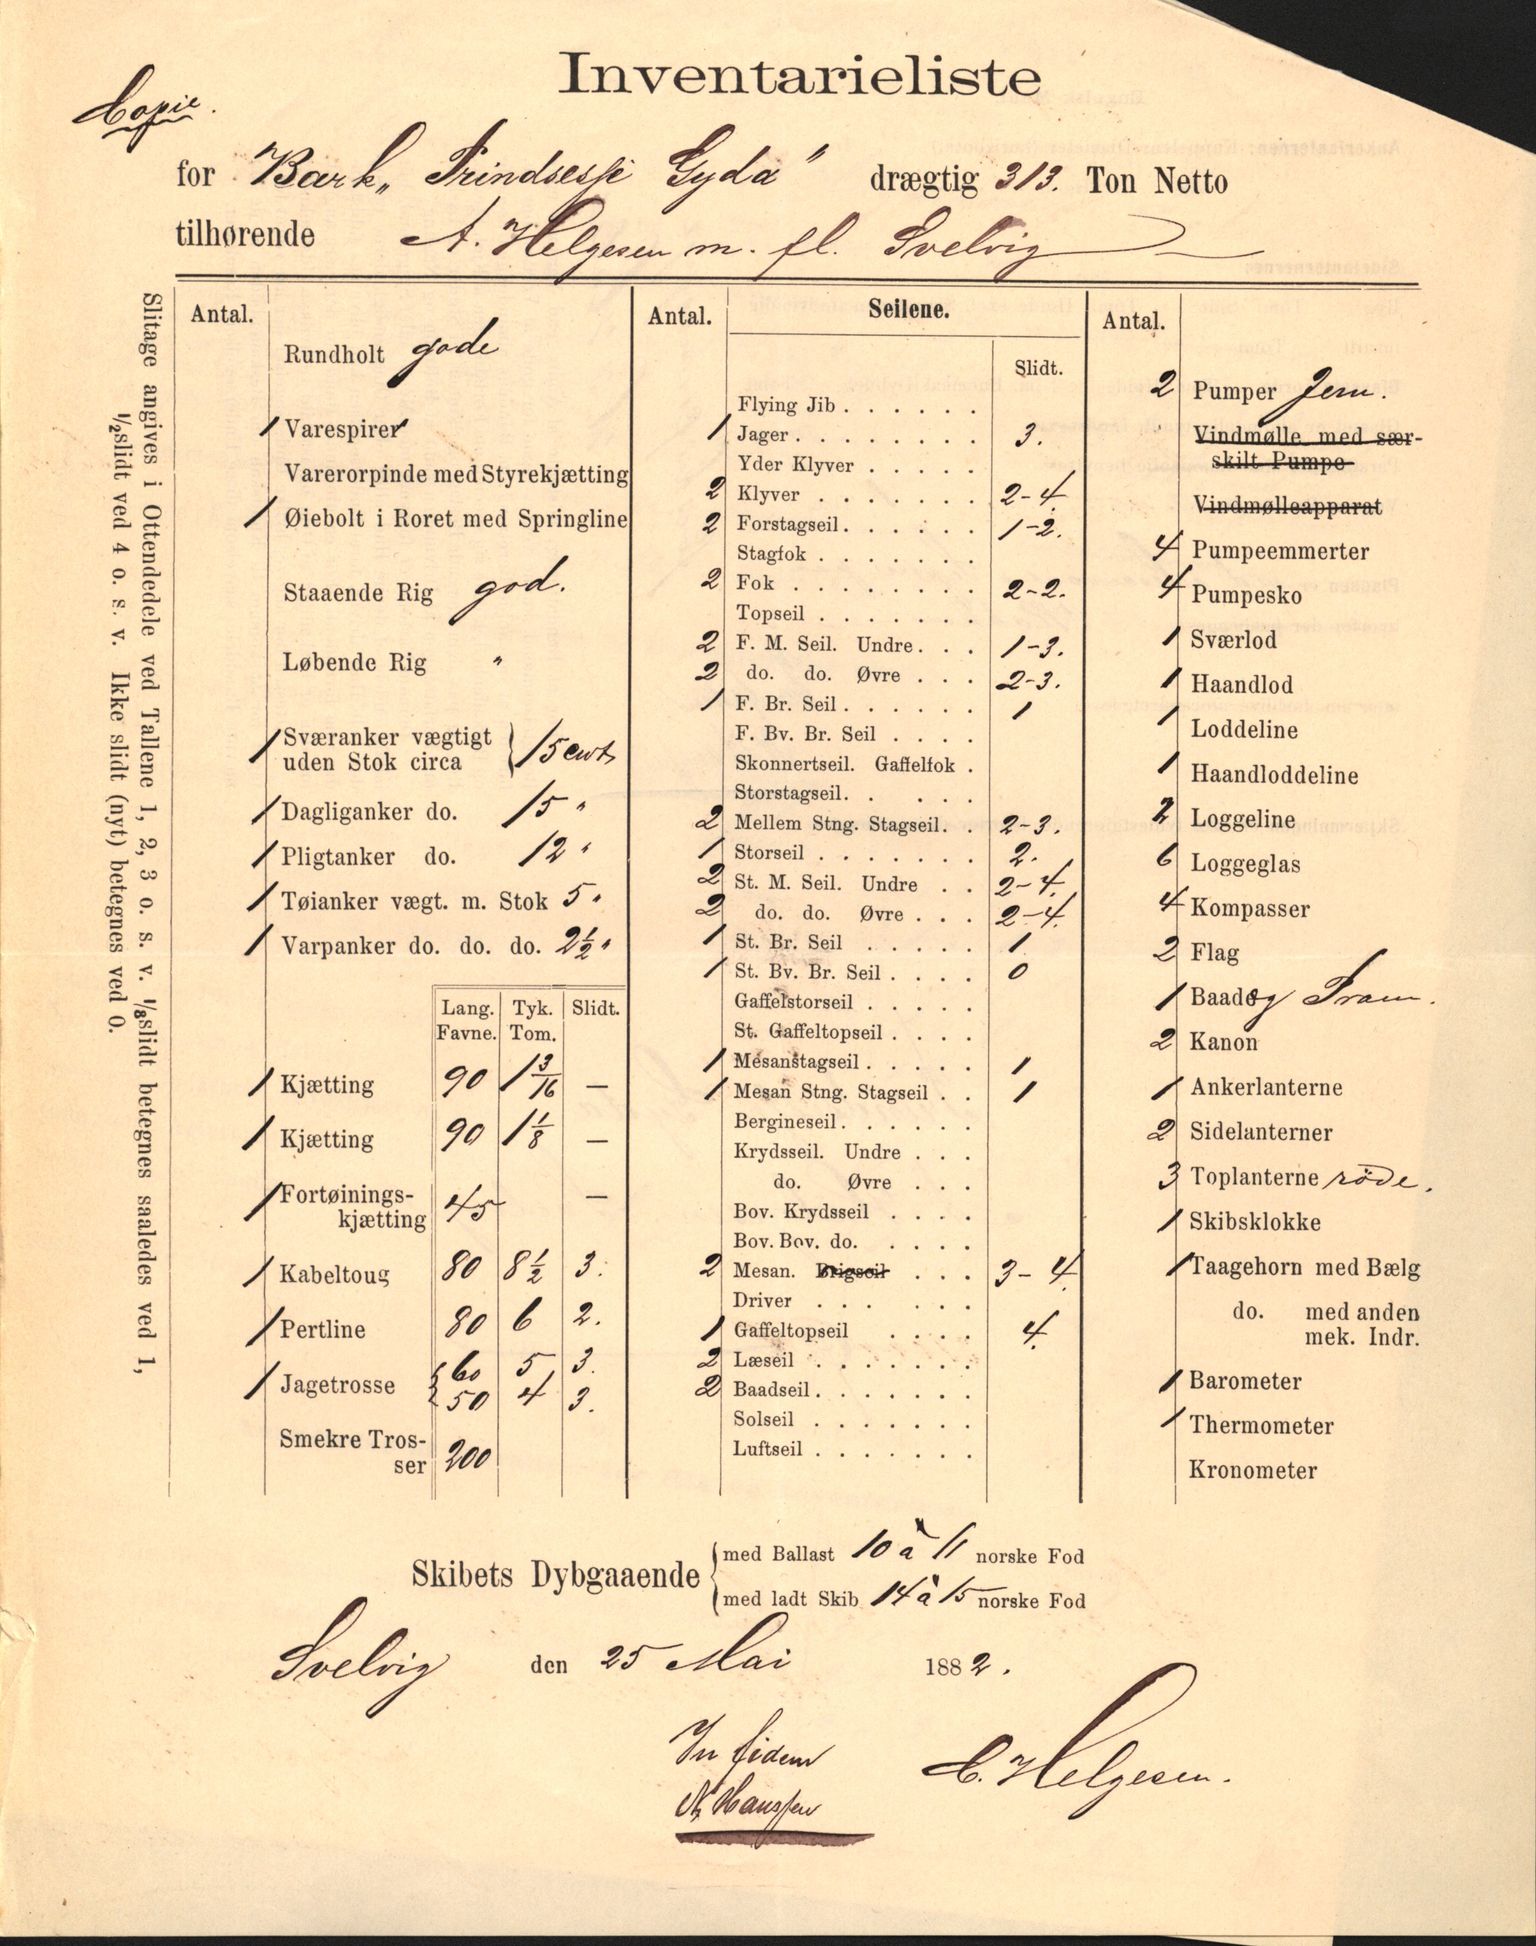 Inventarieliste
Copie.
for Bark „Prindsesse Gyda" drægtig 313. Ton Netto
tilhørende A. Helgesen m. fl. Svelvig
Slitage angives i Ottendedele ved Tallene 1, 2, 3 o. s. v. ⅛slidt betegnes saaledes ved 1,
½slidt ved 4 o. s. v. Ikke slidt (nyt) betegnes ved 0.
Antal.
Rundholt gode
1 Varespirer
Varerorpinde med Styrekjætting
1 Øiebolt i Roret med Springline
Staaende Rig god.
Løbende Rig "
1 Sværanker vægtigt
uden Stok circa } 15 cwt
1 Dagliganker do. 15 "
1 Pligtanker do. 12 "
1 Tøianker vægt. m. Stok 5 "
1 Varpanker do. do. do. 2½ "
Lang. Tyk. Slidt.
Favne. Tom.
1 Kjætting 90 1 3/16 —
1 Kjætting 90 1 1/8 —
1 Fortøinings-
kjætting 45 —
1 Kabeltoug 80 8½ 3.
1 Pertline 80 6 2.
1 Jagetrosse { 60 5 3.
50 4 3.
Smekre Tros-
ser 200
Antal. Seilene.
Slidt.
Flying Jib . . . . . .
1 Jager . . . . . . . 3.
Yder Klyver . . . . .
2 Klyver . . . . . . . 2-4.
2 Forstagseil . . . . . . 1-2.
Stagfok . . . . . . .
2 Fok . . . . . . . . 2-2.
Topseil . . . . . . .
2 F. M. Seil. Undre . . . 1-3.
2 do. do. Øvre . . . 2-3.
1 F. Br. Seil . . . . . . 1
F. Bv. Br. Seil . . . .
Skonnertseil. Gaffelfok .
Storstagseil. . . . .
2 Mellem Stng. Stagseil. . 2-3.
1 Storseil . . . . . . . 2.
2 St. M. Seil. Undre . . 2-4.
2 do. do. Øvre . . . 2-4.
1 St. Br. Seil . . . . . 1.
1 St. Bv. Br. Seil . . . . 0
Gaffelstorseil . . . . .
St. Gaffeltopseil . . . .
1 Mesanstagseil . . . . . 1
1 Mesan Stng. Stagseil . . 1
Bergineseil . . . . . .
Krydsseil. Undre . . .
do. Øvre . . .
Bov. Krydsseil . . . .
Bov. Bov. do. . . . .
2 Mesan. Brigseil . . . 3-4.
Driver . . . . . .
1 Gaffeltopseil . . . . 4.
2 Læseil . . . . . . .
2 Baadseil . . . . . . .
Solseil . . . . . . .
Luftseil . . . . . . .
Antal.
2 Pumper Jern.
Vindmølle med sær-
skilt Pumpe
Vindmølleapparat
4 Pumpeemmerter
4 Pumpesko
1 Sværlod
1 Haandlod
1 Loddeline
1 Haandloddeline
2 Loggeline
6 Loggeglas
4 Kompasser
2 Flag
1 Baad og Pram.
2 Kanon
1 Ankerlanterne
2 Sidelanterner
3 Toplanterne röde.
1 Skibsklokke
1 Taagehorn med Bælg
do. med anden
mek. Indr.
1 Barometer
1 Thermometer
Kronometer
Skibets Dybgaaende { med Ballast 10 à 11 norske Fod
med ladt Skib 14 à 15 norske Fod
Svelvig den 25 Mai 1882.
In fidem C. Helgesen.
N. Hanssen